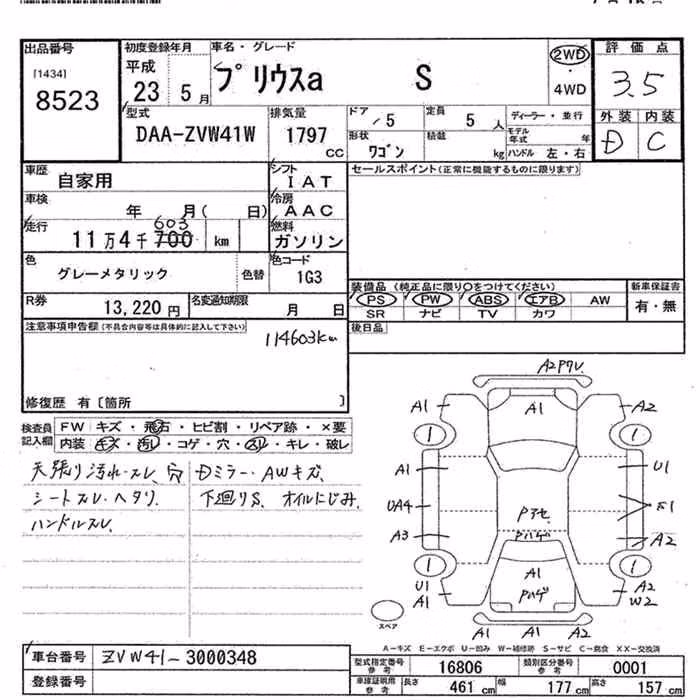 出品番号
[1434]
8523
初度登録年月
平成
23 5月
車名・グレード
プリウスα S
2WD
・
4WD
評価点
3.5
外装 内装
D C
型式
DAA-ZVW41W
排気量
1797
CC
ドア
/5
定員
5人
ディーラー・並行
形状
ワゴン
積載
kg
モデル年式 年
ハンドル 左・右
車歴
自家用
シフト
IAT
セールスポイント(正常に機能するものに限ります)
車検
年 月( 日)
冷房
AAC
走行
603
11万4千700 km
燃料
ガソリン
色
グレーメタリック
色替
色コード
1G3
装備品(純正品に限り○をつけてください)
新車保証書
PS PW ABS エアB AW
有・無
SR ナビ TV カワ
R券
13,220円
名変通知期限
月 日
後日品
注意事項申告欄(不具合内容等は具体的に記入して下さい)
114603km
修復歴 有〔箇所 〕
検査員記入欄
FW キズ・飛石・ヒビ割・リペア跡・×要
内装 キズ・汚れ・コゲ・穴・スリ・キレ・破レ
天張り汚れ・スレ、穴
シートスレ・ヘタリ.
ハンドルスレ.
Dミラー・AWキズ.
下廻りS. オイルにじみ.
A2Pワレ
A1 A1 A2
1 1
A1 U1
UA4 Pアセ
A3 Pハゲ A2
1 1
U1 A1 A2
A1 Pハゲ W2
A1 A1 A2
スペア
A-キズ E-エクボ U-凹み W-補修跡 S-サビ C-腐食 XX-交換済
車台番号
ZVW41-3000348
登録番号
型式指定番号 参考
16806
類別区分番号 参考
0001
車庫証明用 参考
長さ 461cm 幅 177cm 高さ 157cm